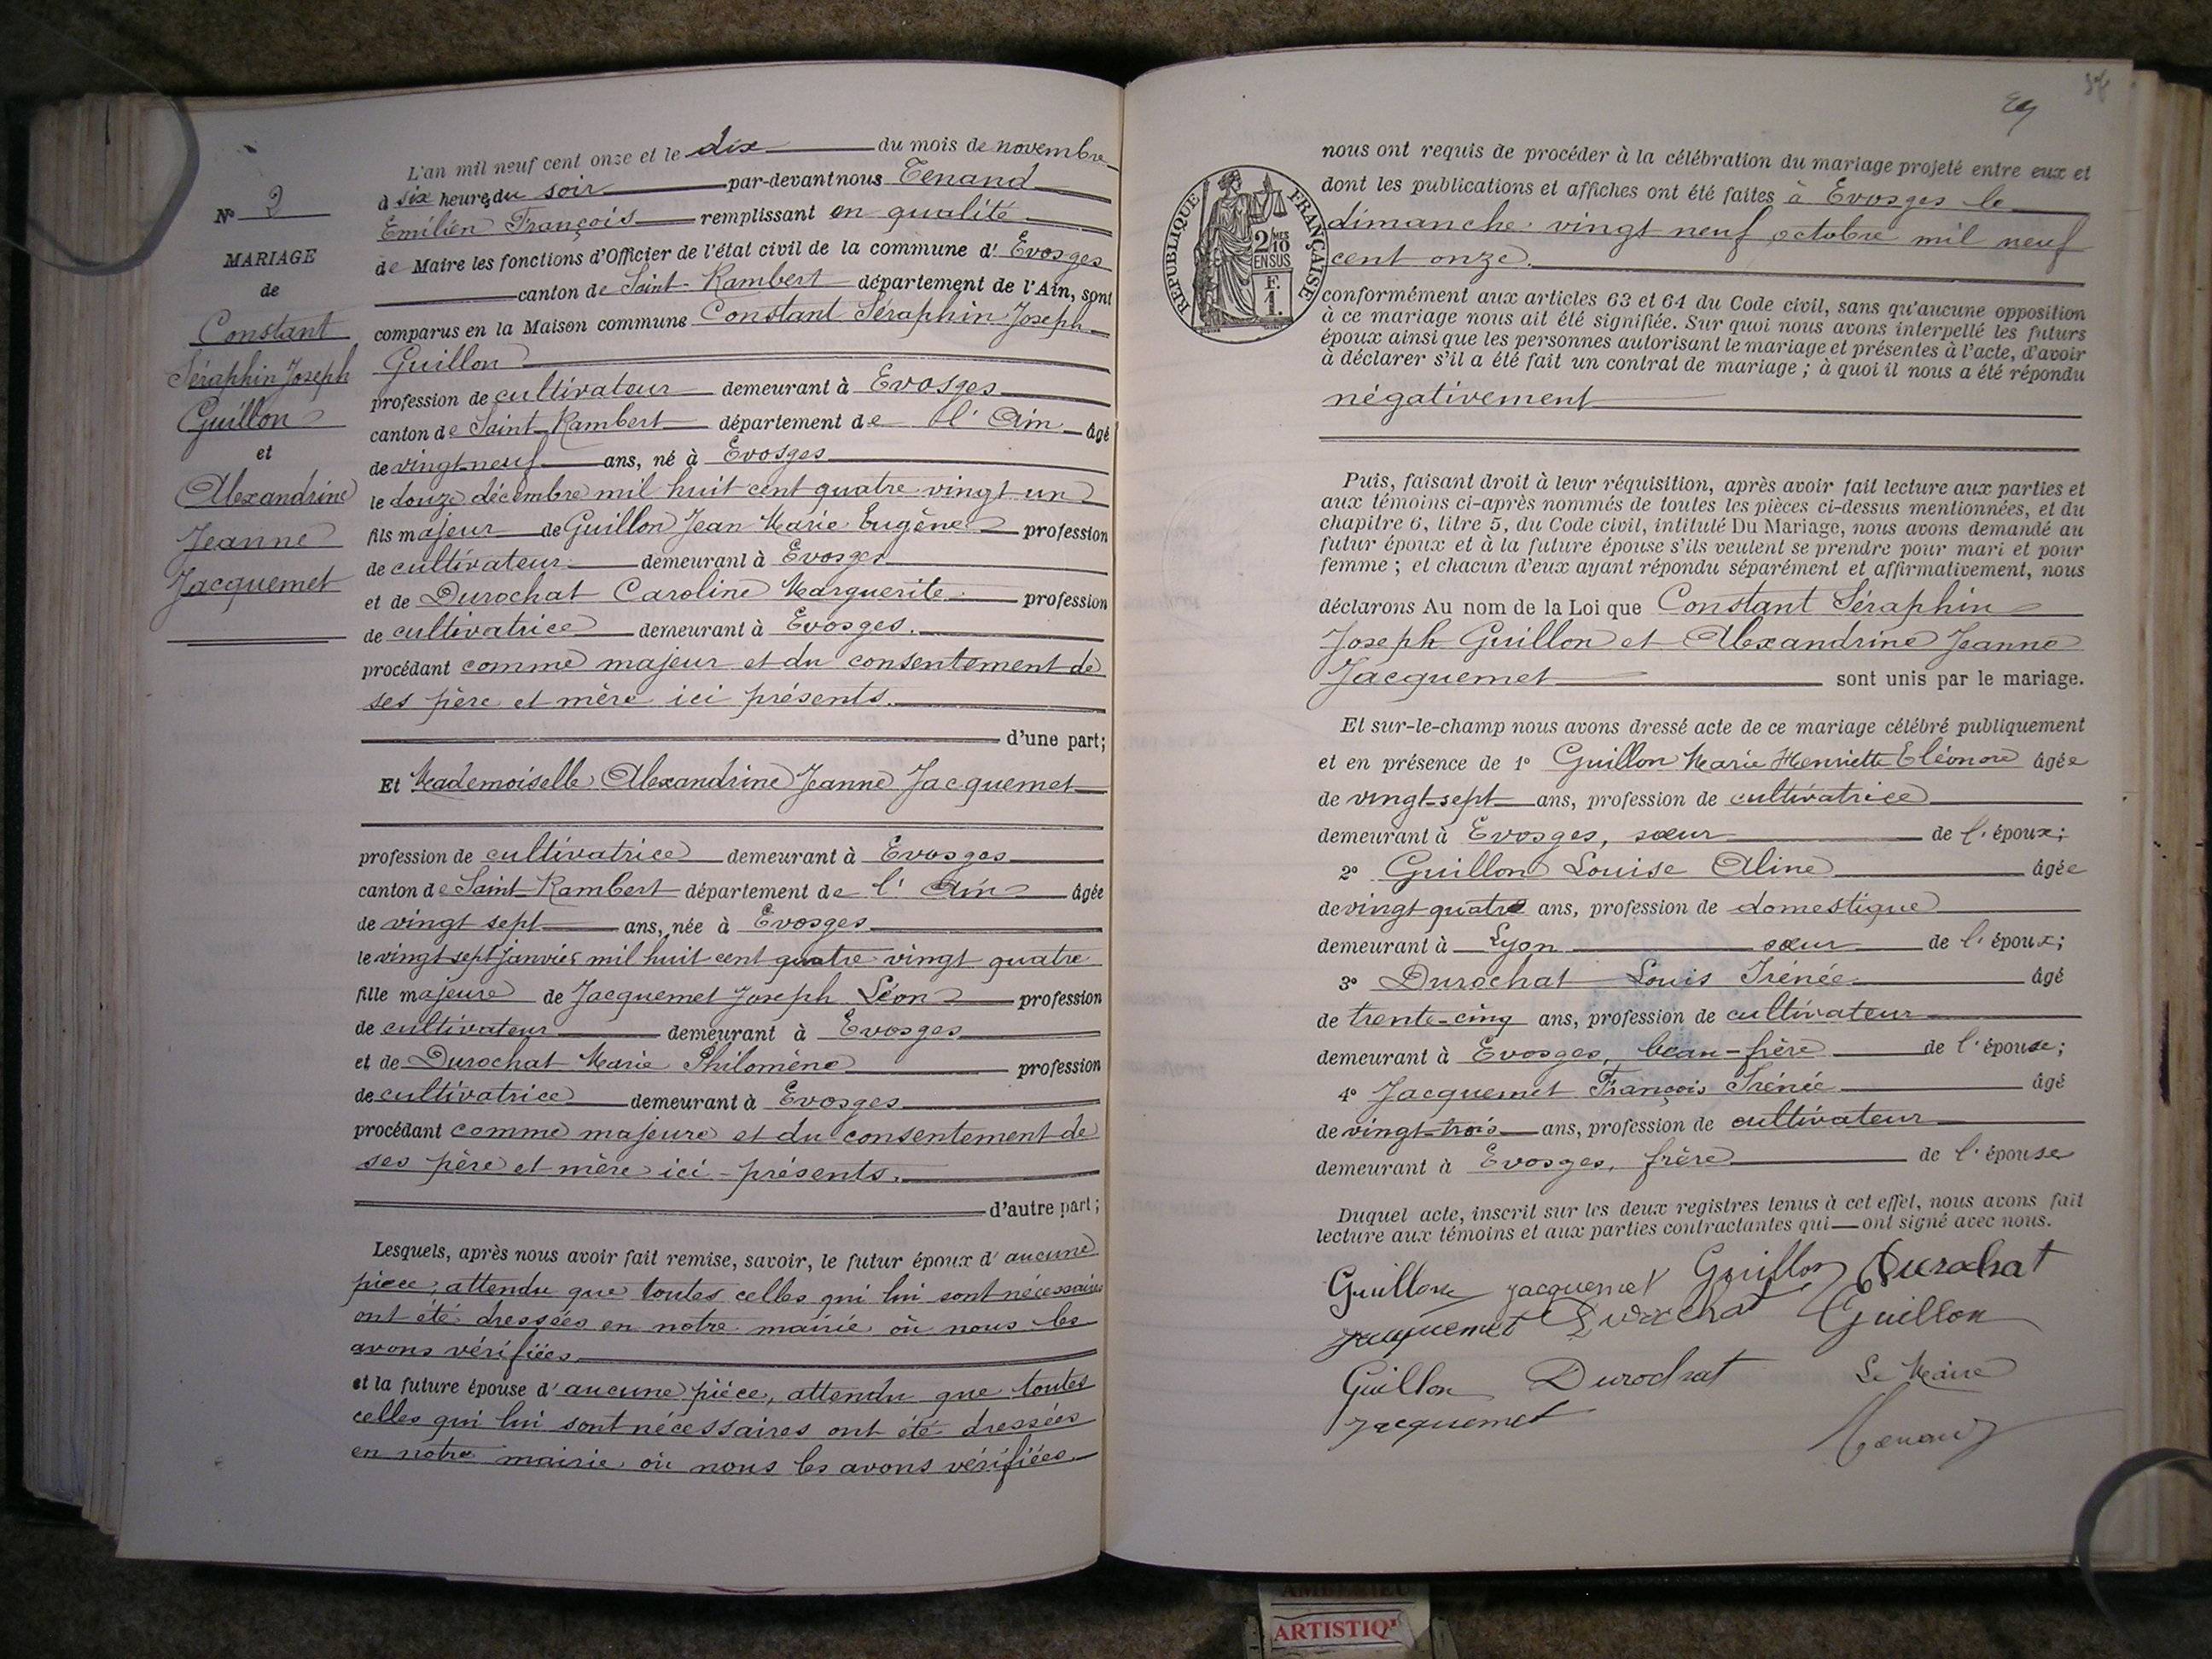 L'an mil neuf cent onze et le dix du mois de novembre
à six heures du soir par-devant nous Tenand
Emilien François remplissant en qualité
de Maire les fonctions d'Officier de l'état civil de la commune d' Evosges
canton de Saint-Rambert département de l'Ain, sont
comparus en la Maison commune Constant Séraphin Joseph
Guillon
profession de cultivateur demeurant à Evosges
canton de Saint-Rambert département de l' Ain âgé
de vingt neuf ans, né à Evosges
le douze décembre mil huit cent quatre vingt un
fils majeur de Guillon Jean Marie Eugène profession
de cultivateur demeurant à Evosges
et de Durochat Caroline Marguerite profession
de cultivatrice demeurant à Evosges.
procédant comme majeur et du consentement de
ses père et mère ici présents.
d'une part;
Et Mademoiselle Alexandrine Jeanne Jacquemet
profession de cultivatrice demeurant à Evosges
canton de Saint-Rambert département de l' Ain âgée
de vingt sept ans, née à Evosges
le vingt sept janvier mil huit cent quatre vingt quatre
fille majeure de Jacquemet Joseph Léon profession
de cultivateur demeurant à Evosges
et de Durochat Marie Philomène profession
de cultivatrice demeurant à Evosges
procédant comme majeure et du consentement de
ses père et mère ici-présents.
d'autre part;
Lesquels, après nous avoir fait remise, savoir, le futur époux d' aucune
pièce, attendu que toutes celles qui lui sont nécessaires
ont été dressées en notre mairie où nous les
avons vérifiées
et la future épouse d' aucune pièce, attendu que toutes
celles qui lui sont nécessaires ont été dressées
en notre mairie où nous les avons vérifiées.
N° 2
MARIAGE
de
Constant
Séraphin Joseph
Guillon
et
Alexandrine
Jeanne
Jacquemet
RÉPUBLIQUE FRANÇAISE
2/10 MES
EN SUS
F.
1.
nous ont requis de procéder à la célébration du mariage projeté entre eux et
dont les publications et affiches ont été faites à Evosges le
dimanche vingt neuf octobre mil neuf
cent onze.
conformément aux articles 63 et 64 du Code civil, sans qu'aucune opposition
à ce mariage nous ait été signifiée. Sur quoi nous avons interpellé les futurs
époux ainsi que les personnes autorisant le mariage et présentes à l'acte, d'avoir
à déclarer s'il a été fait un contrat de mariage ; à quoi il nous a été répondu
négativement
Puis, faisant droit à leur réquisition, après avoir fait lecture aux parties et
aux témoins ci-après nommés de toutes les pièces ci-dessus mentionnées, et du
chapitre 6, litre 5, du Code civil, intitulé Du Mariage, nous avons demandé au
futur époux et à la future épouse s'ils veulent se prendre pour mari et pour
femme ; et chacun d'eux ayant répondu séparément et affirmativement, nous
déclarons Au nom de la Loi que Constant Séraphin
Joseph Guillon et Alexandrine Jeanne
Jacquemet sont unis par le mariage.
Et sur-le-champ nous avons dressé acte de ce mariage célébré publiquement
et en présence de 1° Guillon Marie Henriette Eléonore âgée
de vingt-sept ans, profession de cultivatrice
demeurant à Evosges, sœur de l'époux;
2° Guillon Louise Aline âgée
de vingt quatre ans, profession de domestique
demeurant à Lyon sœur de l'époux;
3° Durochat Louis Irénée âgé
de trente-cinq ans, profession de cultivateur
demeurant à Evosges, beau-frère de l'épouse;
4° Jacquemet François Irénée âgé
de vingt-trois ans, profession de cultivateur
demeurant à Evosges, frère de l'épouse
Duquel acte, inscrit sur les deux registres tenus à cet effet, nous avons fait
lecture aux témoins et aux parties contractantes qui ont signé avec nous.
Guillon Jacquemet Guillon Durochat
Jacquemet Durochat Guillon
Guillon Durochat Le Maire
Jacquemet Tenand
AMBERIEU
ARTISTIQ